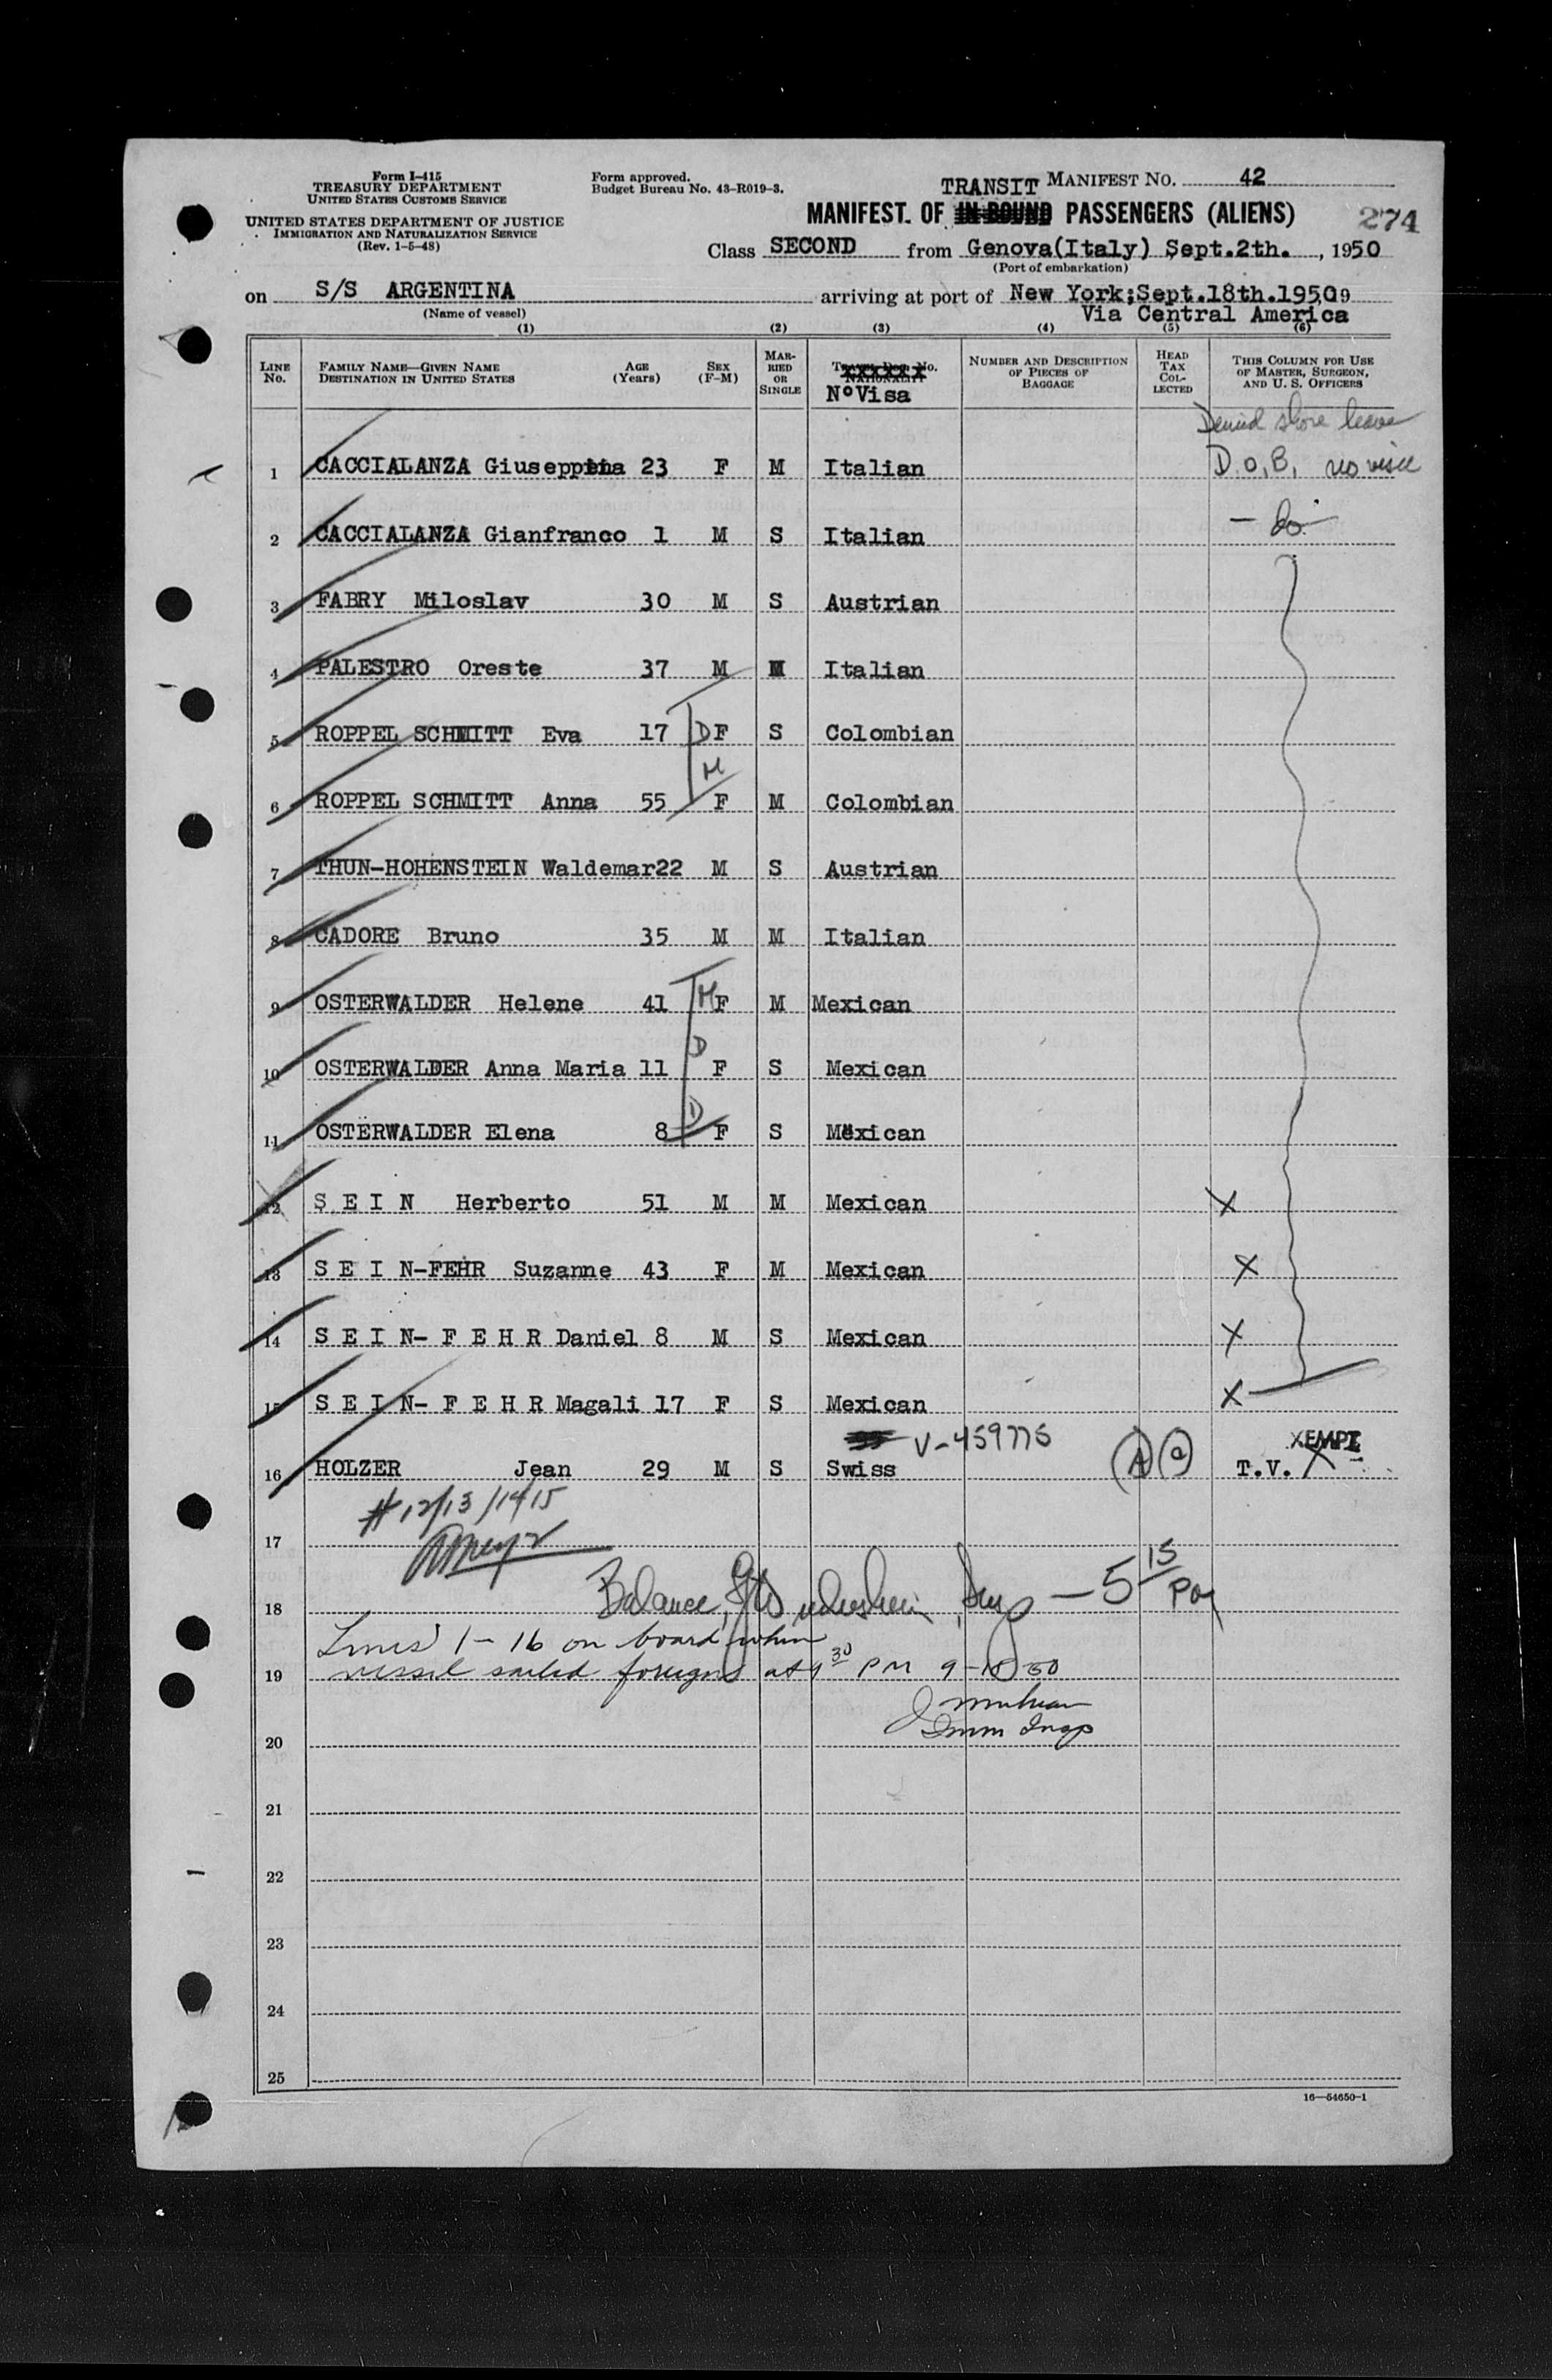 Form I-415
TREASURY DEPARTMENT
UNITED STATES CUSTOMS SERVICE
UNITED STATES DEPARTMENT OF JUSTICE
IMMIGRATION AND NATURALIZATION SERVICE
(Rev. 1-5-48)
Form approved.
Budget Bureau No. 43-R019-3.
TRANSIT MANIFEST NO. 42
MANIFEST. OF IN-BOUND PASSENGERS (ALIENS) 274
Class SECOND from Genova(Italy) Sept.2th. , 1950
(Port of embarkation)
on S/S ARGENTINA arriving at port of New York;Sept.18th.1950
(Name of vessel) Via Central America
(1) (2) (3) (4) (5) (6)
LINE No. FAMILY NAME—GIVEN NAME DESTINATION IN UNITED STATES AGE (Years) SEX (F-M) MARRIED OR SINGLE NoVisa NUMBER AND DESCRIPTION OF PIECES OF BAGGAGE HEAD TAX COLLECTED THIS COLUMN FOR USE OF MASTER, SURGEON, AND U. S. OFFICERS
Denied shore leave
1 CACCIALANZA Giuseppina 23 F M Italian D.O.B. no visa
2 CACCIALANZA Gianfranco 1 M S Italian — do —
3 FABRY Miloslav 30 M S Austrian
4 PALESTRO Oreste 37 M M Italian
5 ROPPEL SCHMITT Eva 17 D F S Colombian
M
6 ROPPEL SCHMITT Anna 55 F M Colombian
7 THUN-HOHENSTEIN Waldemar22 M S Austrian
8 CADORE Bruno 35 M M Italian
9 OSTERWALDER Helene 41 M F M Mexican
D
10 OSTERWALDER Anna Maria 11 F S Mexican
D
11 OSTERWALDER Elena 8 F S Mexican
12 S E I N Herberto 51 M M Mexican X
13 S E I N-FEHR Suzanne 43 F M Mexican X
14 S E I N- F E H R Daniel 8 M S Mexican X
15 S E I N- F E H R Magali 17 F S Mexican X
V-459775 XEMPT
16 HOLZER Jean 29 M S Swiss A a T.V. X
# 12/13/14 15
17
Balance, Insp — 5 15 PM
18
Lines 1-16 on board when
19 vessel sailed foreign at 9 30 PM 9-18-50
Imm Insp
20
21
22
23
24
25
16—54650-1